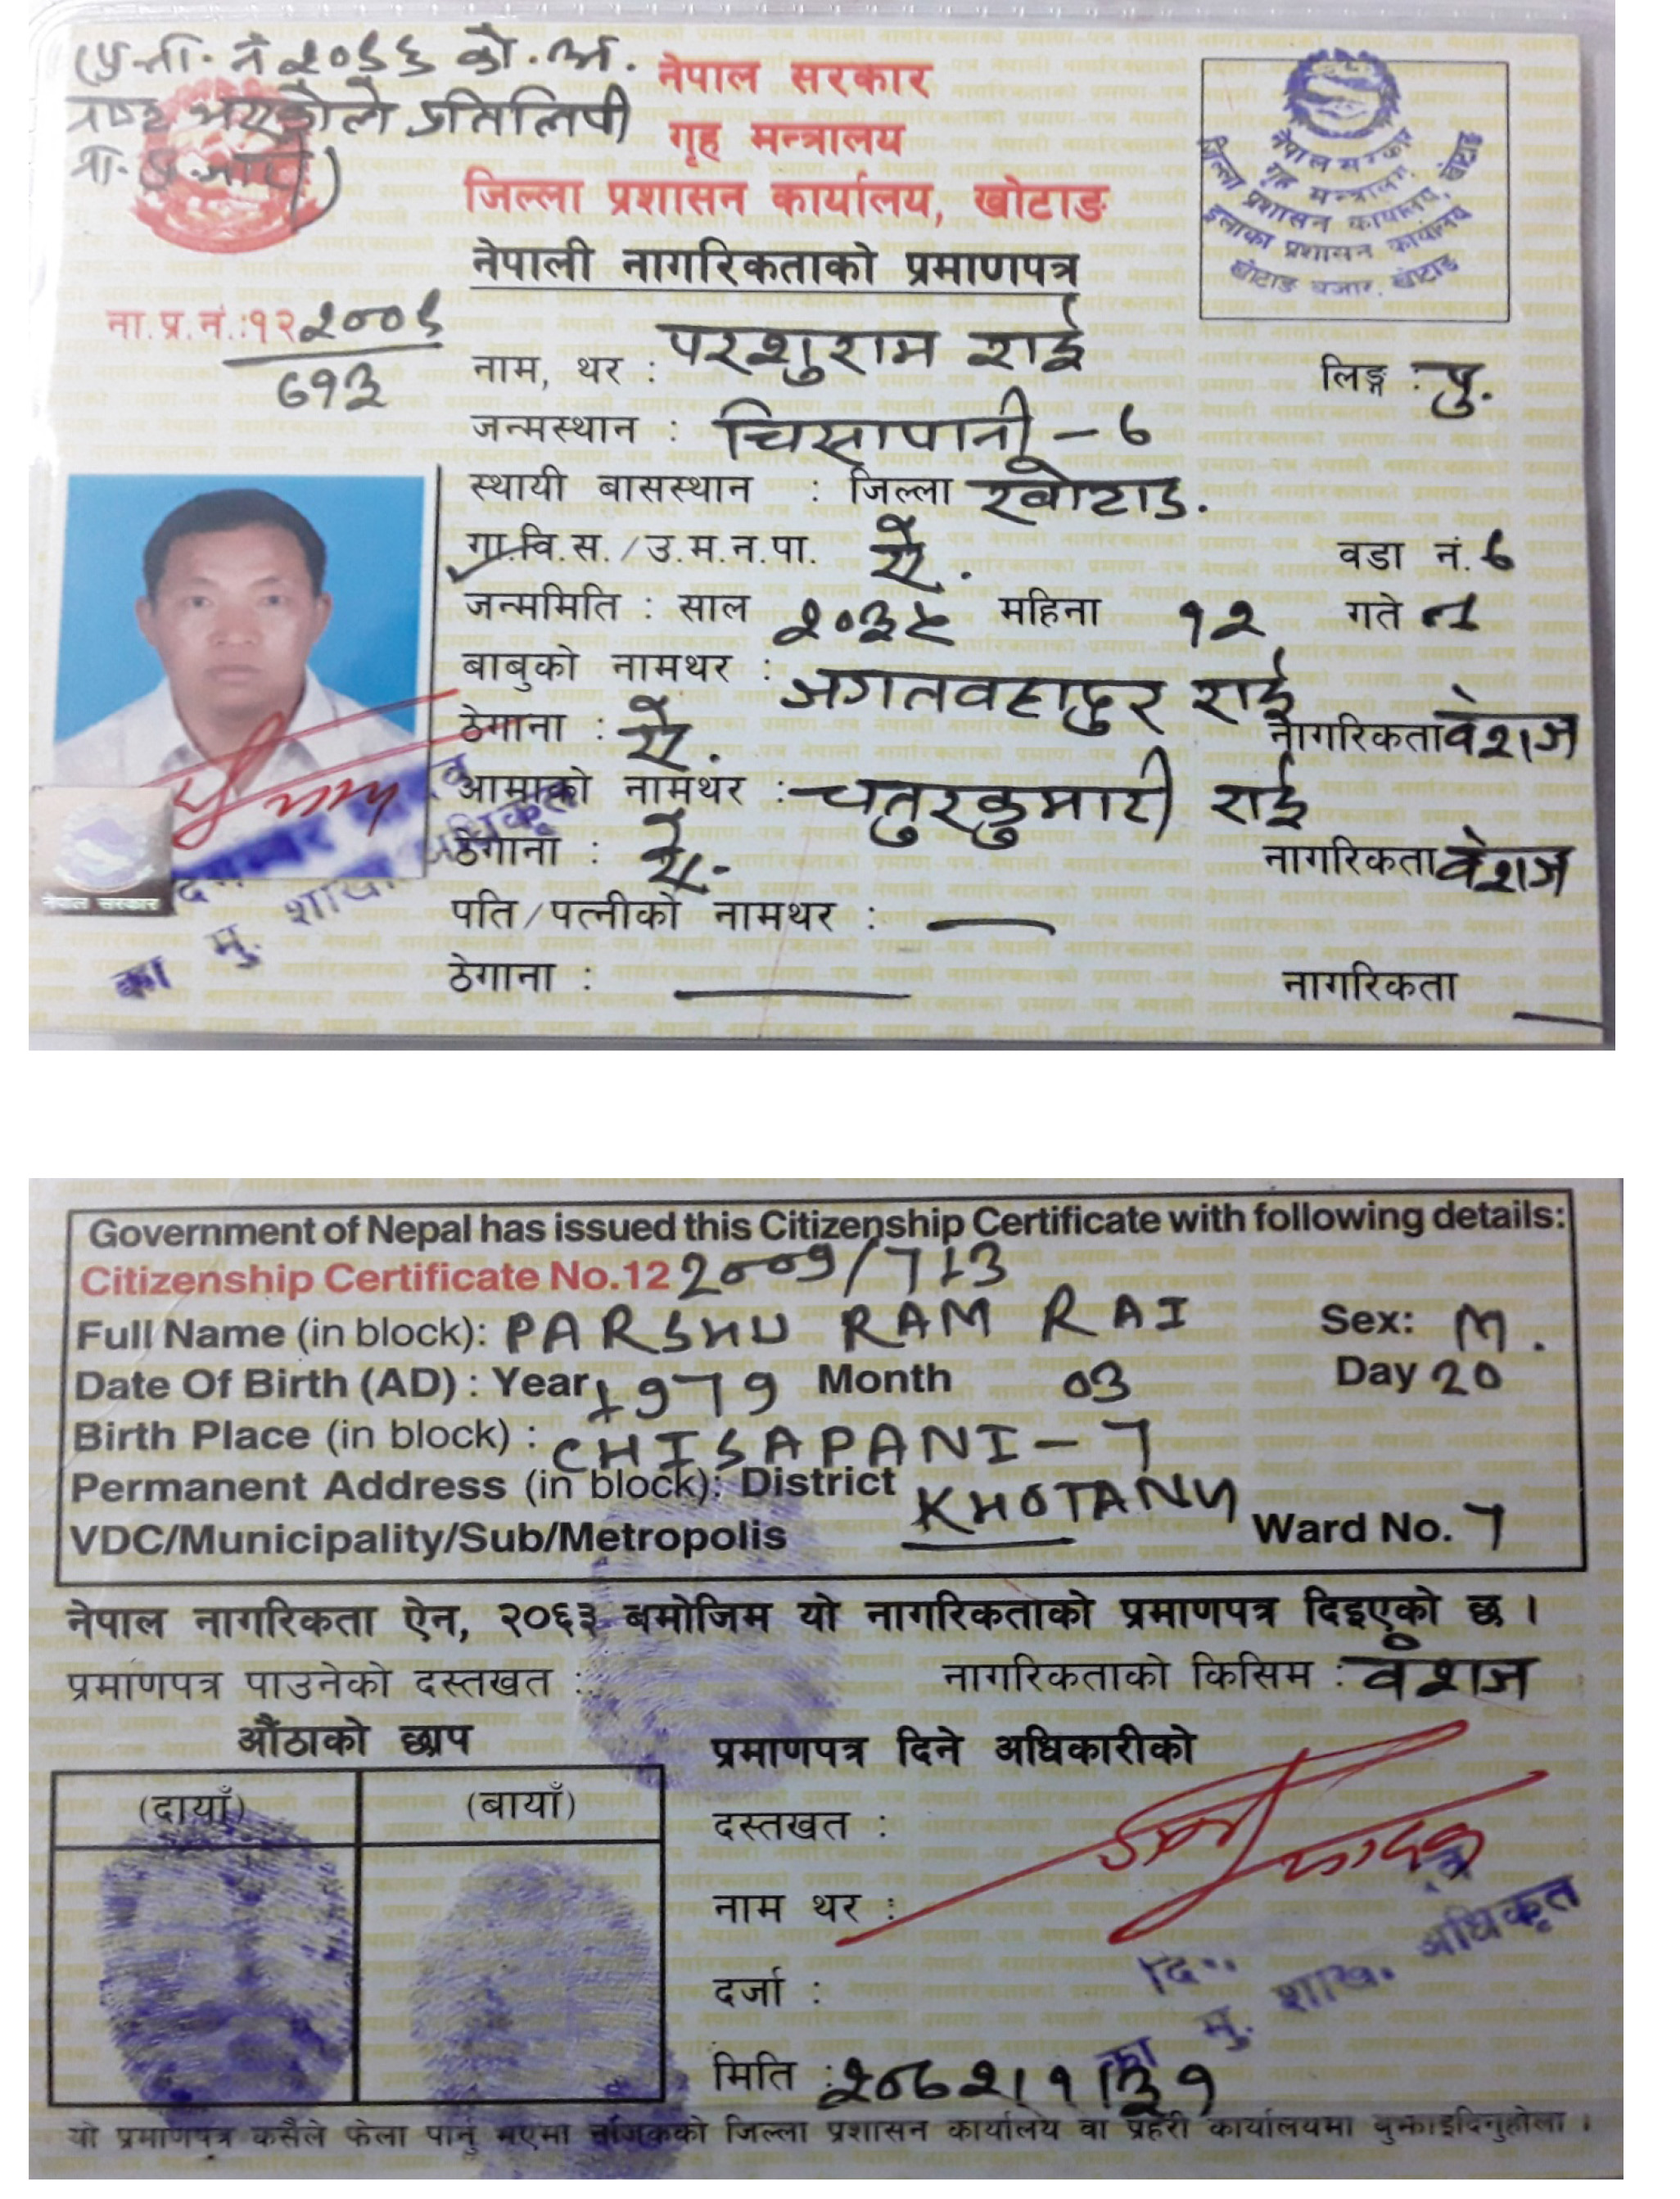 (पु. ना. नं २०६६ को. अ.
भएकोले प्रतिलिपी
ना. प्र. जारी)
नेपाल सरकार
गृह मन्त्रालय
जिल्ला प्रशासन कार्यालय, खोटाङ
नेपाल सरकार
गृह मन्त्रालय
जिल्ला प्रशासन कार्यालय, खोटाङ
इलाका प्रशासन कार्यालय
खोटाङ बजार, खोटाङ
नेपाली नागरिकताको प्रमाणपत्र
ना.प्र.नं.:१२२००९
७१३
नाम, थर : परशुराम राई लिङ्ग : पु.
जन्मस्थान : चिसापानी - ७
स्थायी बासस्थान : जिल्ला खोटाङ.
गा.वि.स./उ.म.न.पा. ऐ. वडा नं. ७
जन्ममिति : साल २०३५ महिना १२ गते
बाबुको नामथर : जगतवहादुर राई
ठेगाना : ऐ. नागरिकता वंशज
आमाको नामथर : चतुरकुमारी राई
ठेगाना : ऐ. नागरिकता वंशज
पति/पत्नीको नामथर : —
ठेगाना : — नागरिकता —
नेपाल सरकार
का मु. शाखा अधिकृत
Government of Nepal has issued this Citizenship Certificate with following details:
Citizenship Certificate No.12 2009/713
Full Name (in block): PARSHU RAM RAI Sex: M.
Date Of Birth (AD) : Year 1979 Month 03 Day 20
Birth Place (in block) : CHISAPANI - 7
Permanent Address (in block): District KHOTANG
VDC/Municipality/Sub/Metropolis Ward No. 7
नेपाल नागरिकता ऐन, २०६३ बमोजिम यो नागरिकताको प्रमाणपत्र दिइएको छ ।
प्रमाणपत्र पाउनेको दस्तखत : नागरिकताको किसिम : वंशज
औंठाको छाप
(दायाँ) (बायाँ)
प्रमाणपत्र दिने अधिकारीको
दस्तखत :
नाम थर :
दर्जा :
का मु. शाखा अधिकृत
मिति : २०७२।१।३१
यो प्रमाणपत्र कसैले फेला पार्नु भएमा नजिकको जिल्ला प्रशासन कार्यालय वा प्रहरी कार्यालयमा बुझाइदिनुहोला ।